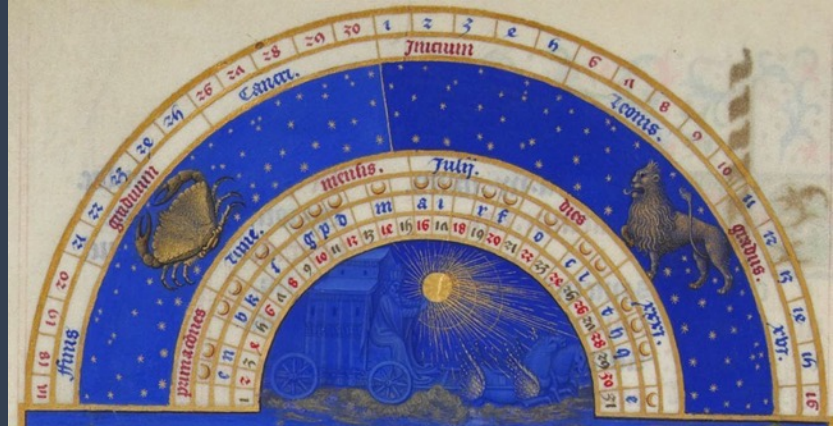 17 18 19 20 21 22 23 24 25 26 27 28 29 30 1 2 3 4 5 6 7 8 9 10 11 12 13 14 15 16
ffinis graduum Cancri. Inicium Leonis. gradus .xvi.
primaciones lune. mensis Julij. dies .xxxi.
b k s g p d m a i r f o c l h b e
1 2 3 4 5 6 7 8 9 10 11 12 13 14 15 16 17 18 19 20 21 22 23 24 25 26 27 28 29 30 31